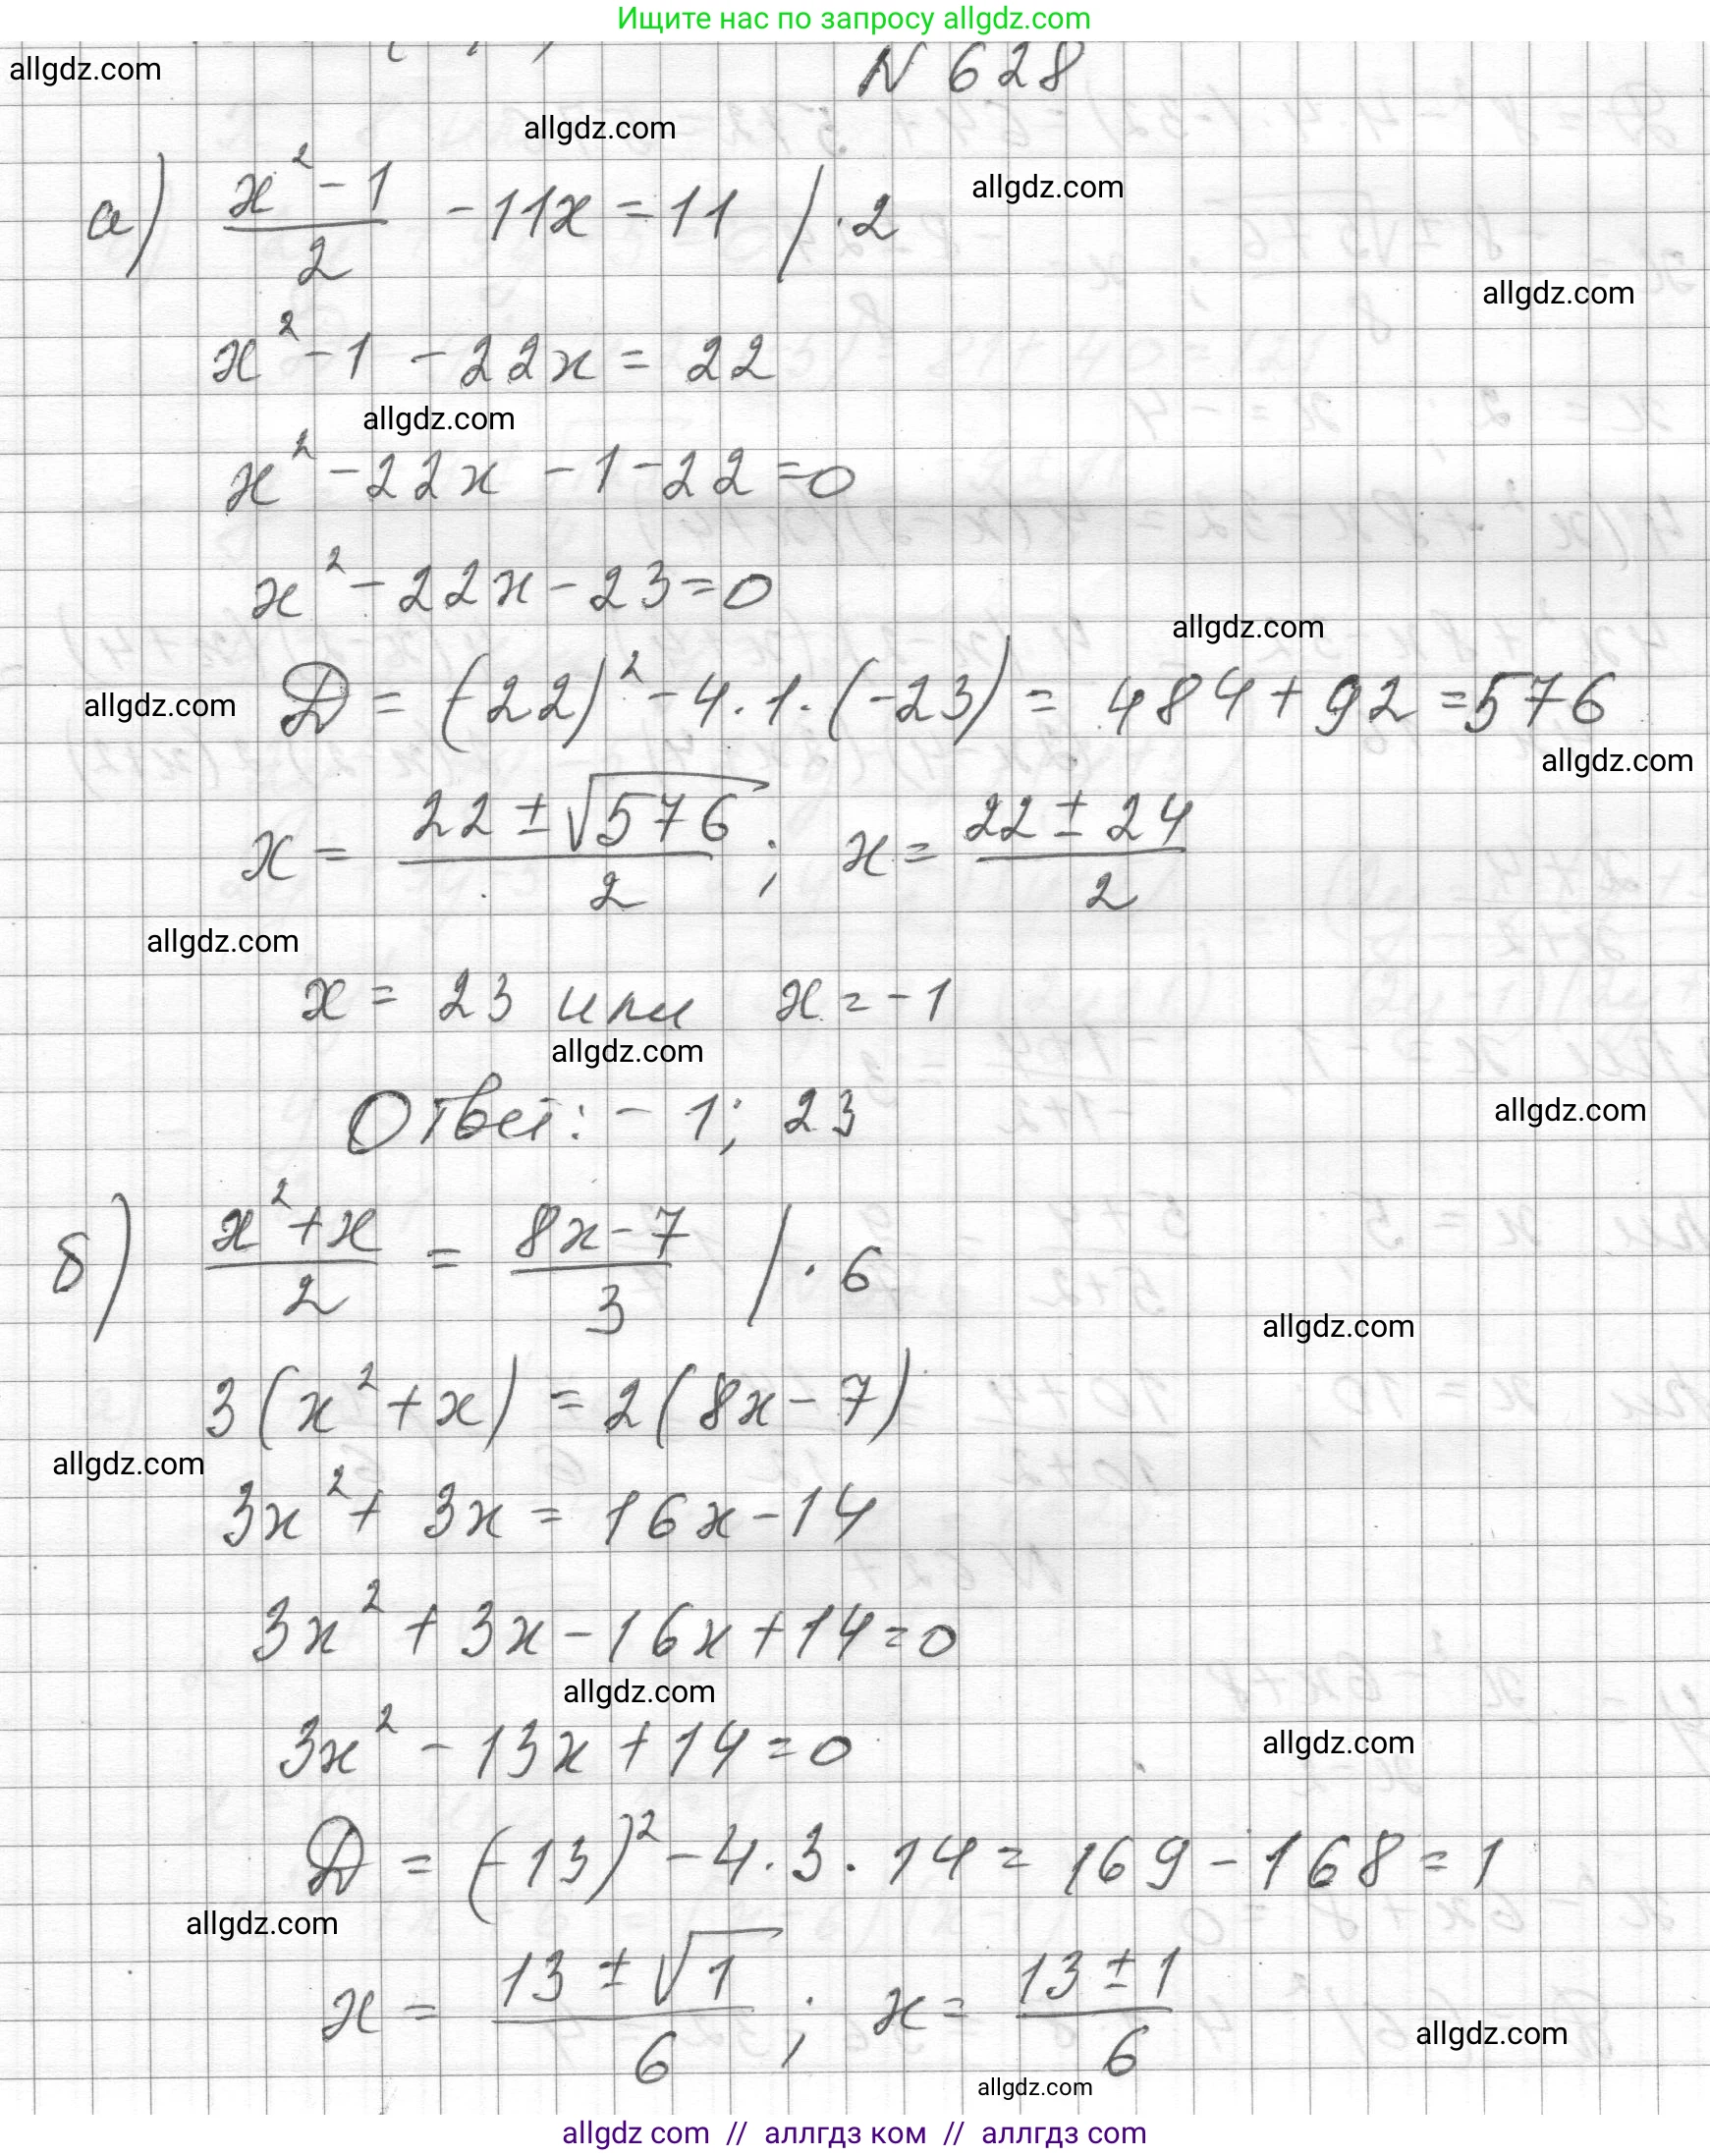 Ищите нас по запросу allgdz.com
allgdz.com
N 628
allgdz.com
а) (x² - 1)/2 - 11x = 11 / · 2
allgdz.com
allgdz.com
x² - 1 - 22x = 22
allgdz.com
x² - 22x - 1 - 22 = 0
x² - 22x - 23 = 0
allgdz.com
D = (-22)² - 4 · 1 · (-23) = 484 + 92 = 576
allgdz.com
allgdz.com
x = (22 ± √576)/2 ; x = (22 ± 24)/2
allgdz.com
x = 23 или x = -1
allgdz.com
Ответ: -1; 23
allgdz.com
б) (x² + x)/2 = (8x - 7)/3 / · 6
allgdz.com
3(x² + x) = 2(8x - 7)
allgdz.com
3x² + 3x = 16x - 14
3x² + 3x - 16x + 14 = 0
allgdz.com
3x² - 13x + 14 = 0
allgdz.com
D = (-13)² - 4 · 3 · 14 = 169 - 168 = 1
allgdz.com
x = (13 ± √1)/6 ; x = (13 ± 1)/6
allgdz.com
allgdz.com
allgdz com // аллгдз ком // аллгдз com